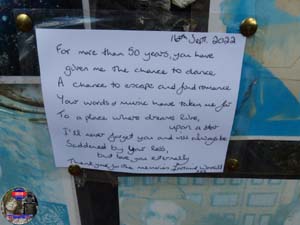 16th Sept. 2022
For more than 50 years, you have
given me the chance to dance
A chance to escape and find romance
Your words & music have taken me far
To a place where dreams like,
upon a star
I'll never forget you and will always be
Saddened by your loss,
but love you eternally
Thank you for the memories
xxx